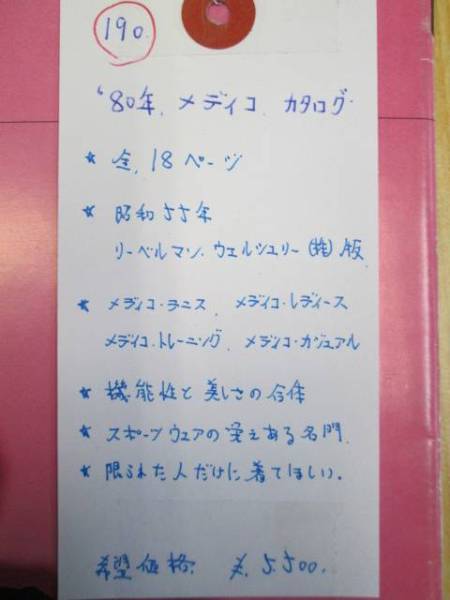 190
'80年. メディコ カタログ.
★ 全. 18ページ
★ 昭和55年
リーベルマン. ウェルシュリー (株) 版
★ メディコ・テニス メディコ・レディース
メディコ・トレーニング. メディコ・カジュアル
★ 機能性と美しさの合体
★ スポーツウェアの栄えある名門.
★ 限られた人だけに着てほしい.
希望価格. ¥. 5.500.